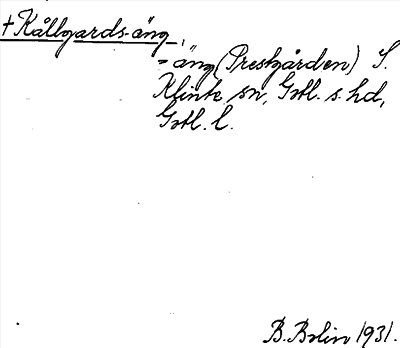 † Kållgards-äng,
- äng (Prestgården) S.
Klinte sn, Gotl. s. hd,
Gotl. l.
B. Bolin 1931.